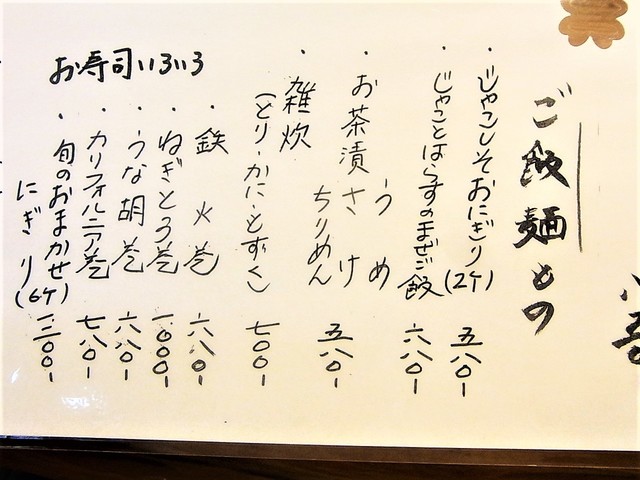 ご飯麺もの
・じゃこしそおにぎり(2ケ) 五八〇-
・じゃことはらすのまぜご飯 六八〇-
・お茶漬 うめ
さけ
ちりめん 五八〇-
・雑炊
(とり・かに・もずく) 七〇〇-
お寿司いろいろ
・鉄火巻 六八〇-
・ねぎとろ巻 一〇〇〇-
・うな胡巻 六八〇-
・カリフォルニア巻 七八〇-
・旬のおまかせ
にぎり(6ケ) 一二〇〇-